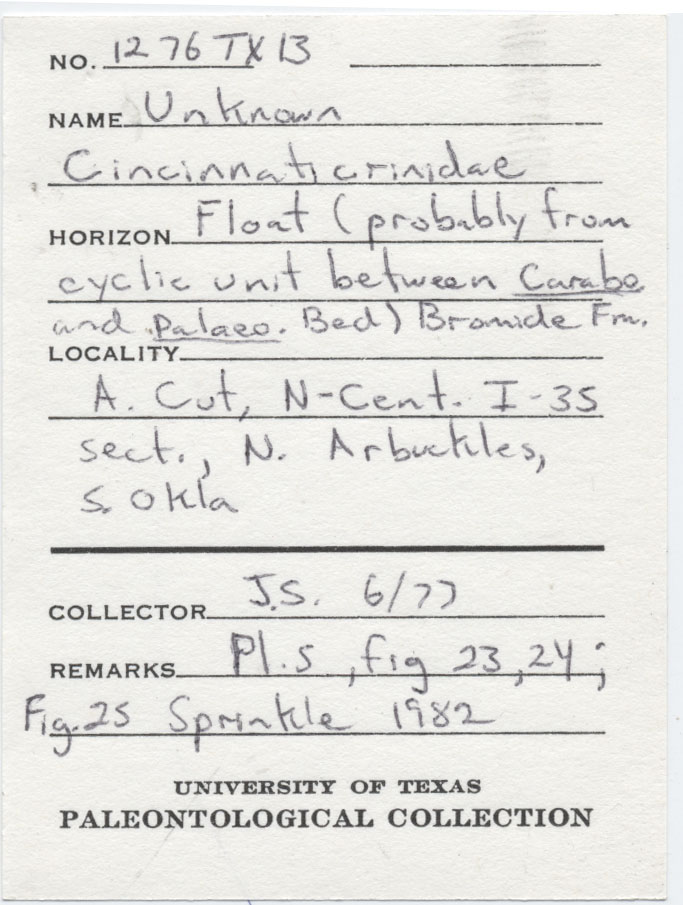 NO. 1276TX13
NAME Unknown
Cincinnaticrinidae
HORIZON Float (probably from
cyclic unit between Carabo.
and Palaeo. Bed) Bromide Fm.
LOCALITY
A. Cut, N-Cent. I-35
sect., N. Arbuckles,
S. Okla
COLLECTOR J.S. 6/77
REMARKS Pl.5, fig 23,24;
Fig.25 Sprinkle 1982
UNIVERSITY OF TEXAS
PALEONTOLOGICAL COLLECTION